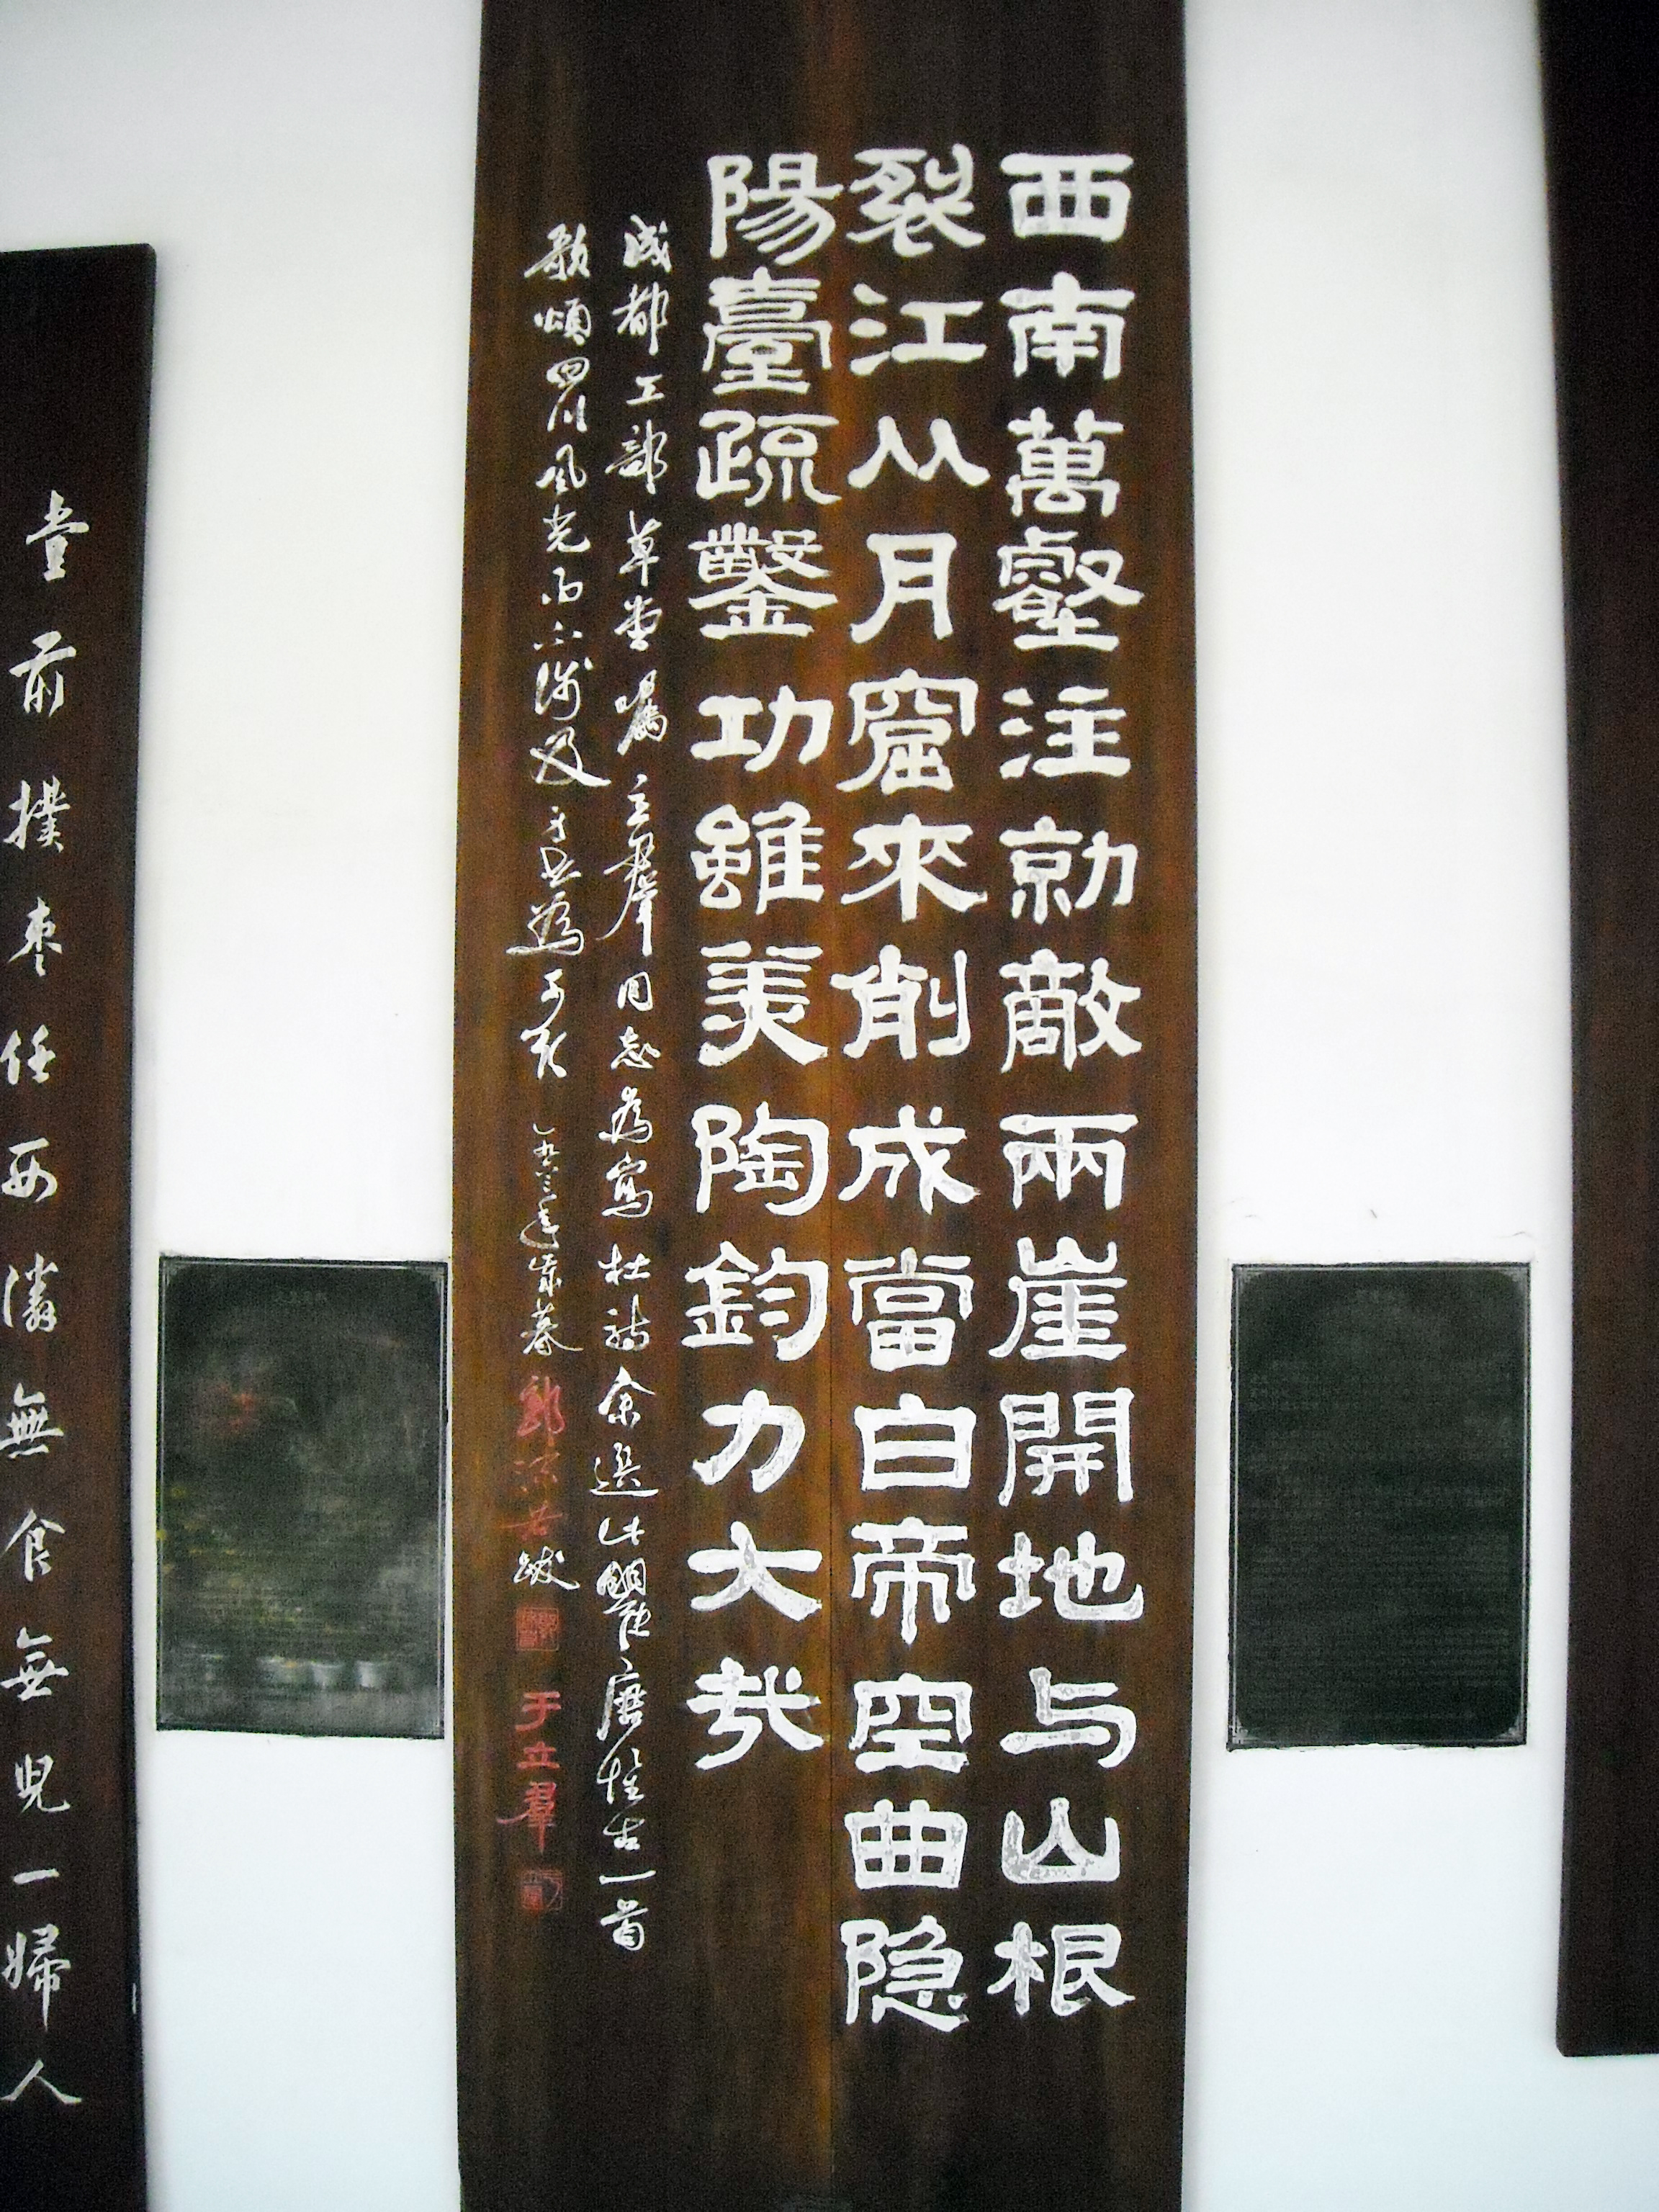 西南萬壑注勍敵兩崖開地与山根
裂江从月窟來削成當白帝空曲隐
陽臺疏鑿功雖美陶鈞力大哉
成都工部草堂囑立羣同志為寫杜詩余選此瞿唐怀古一首
歌頌四川風光而不 一九六三年歲暮 郭沫若跋 于立羣
堂前撲棗任西隣無食無兒一婦人